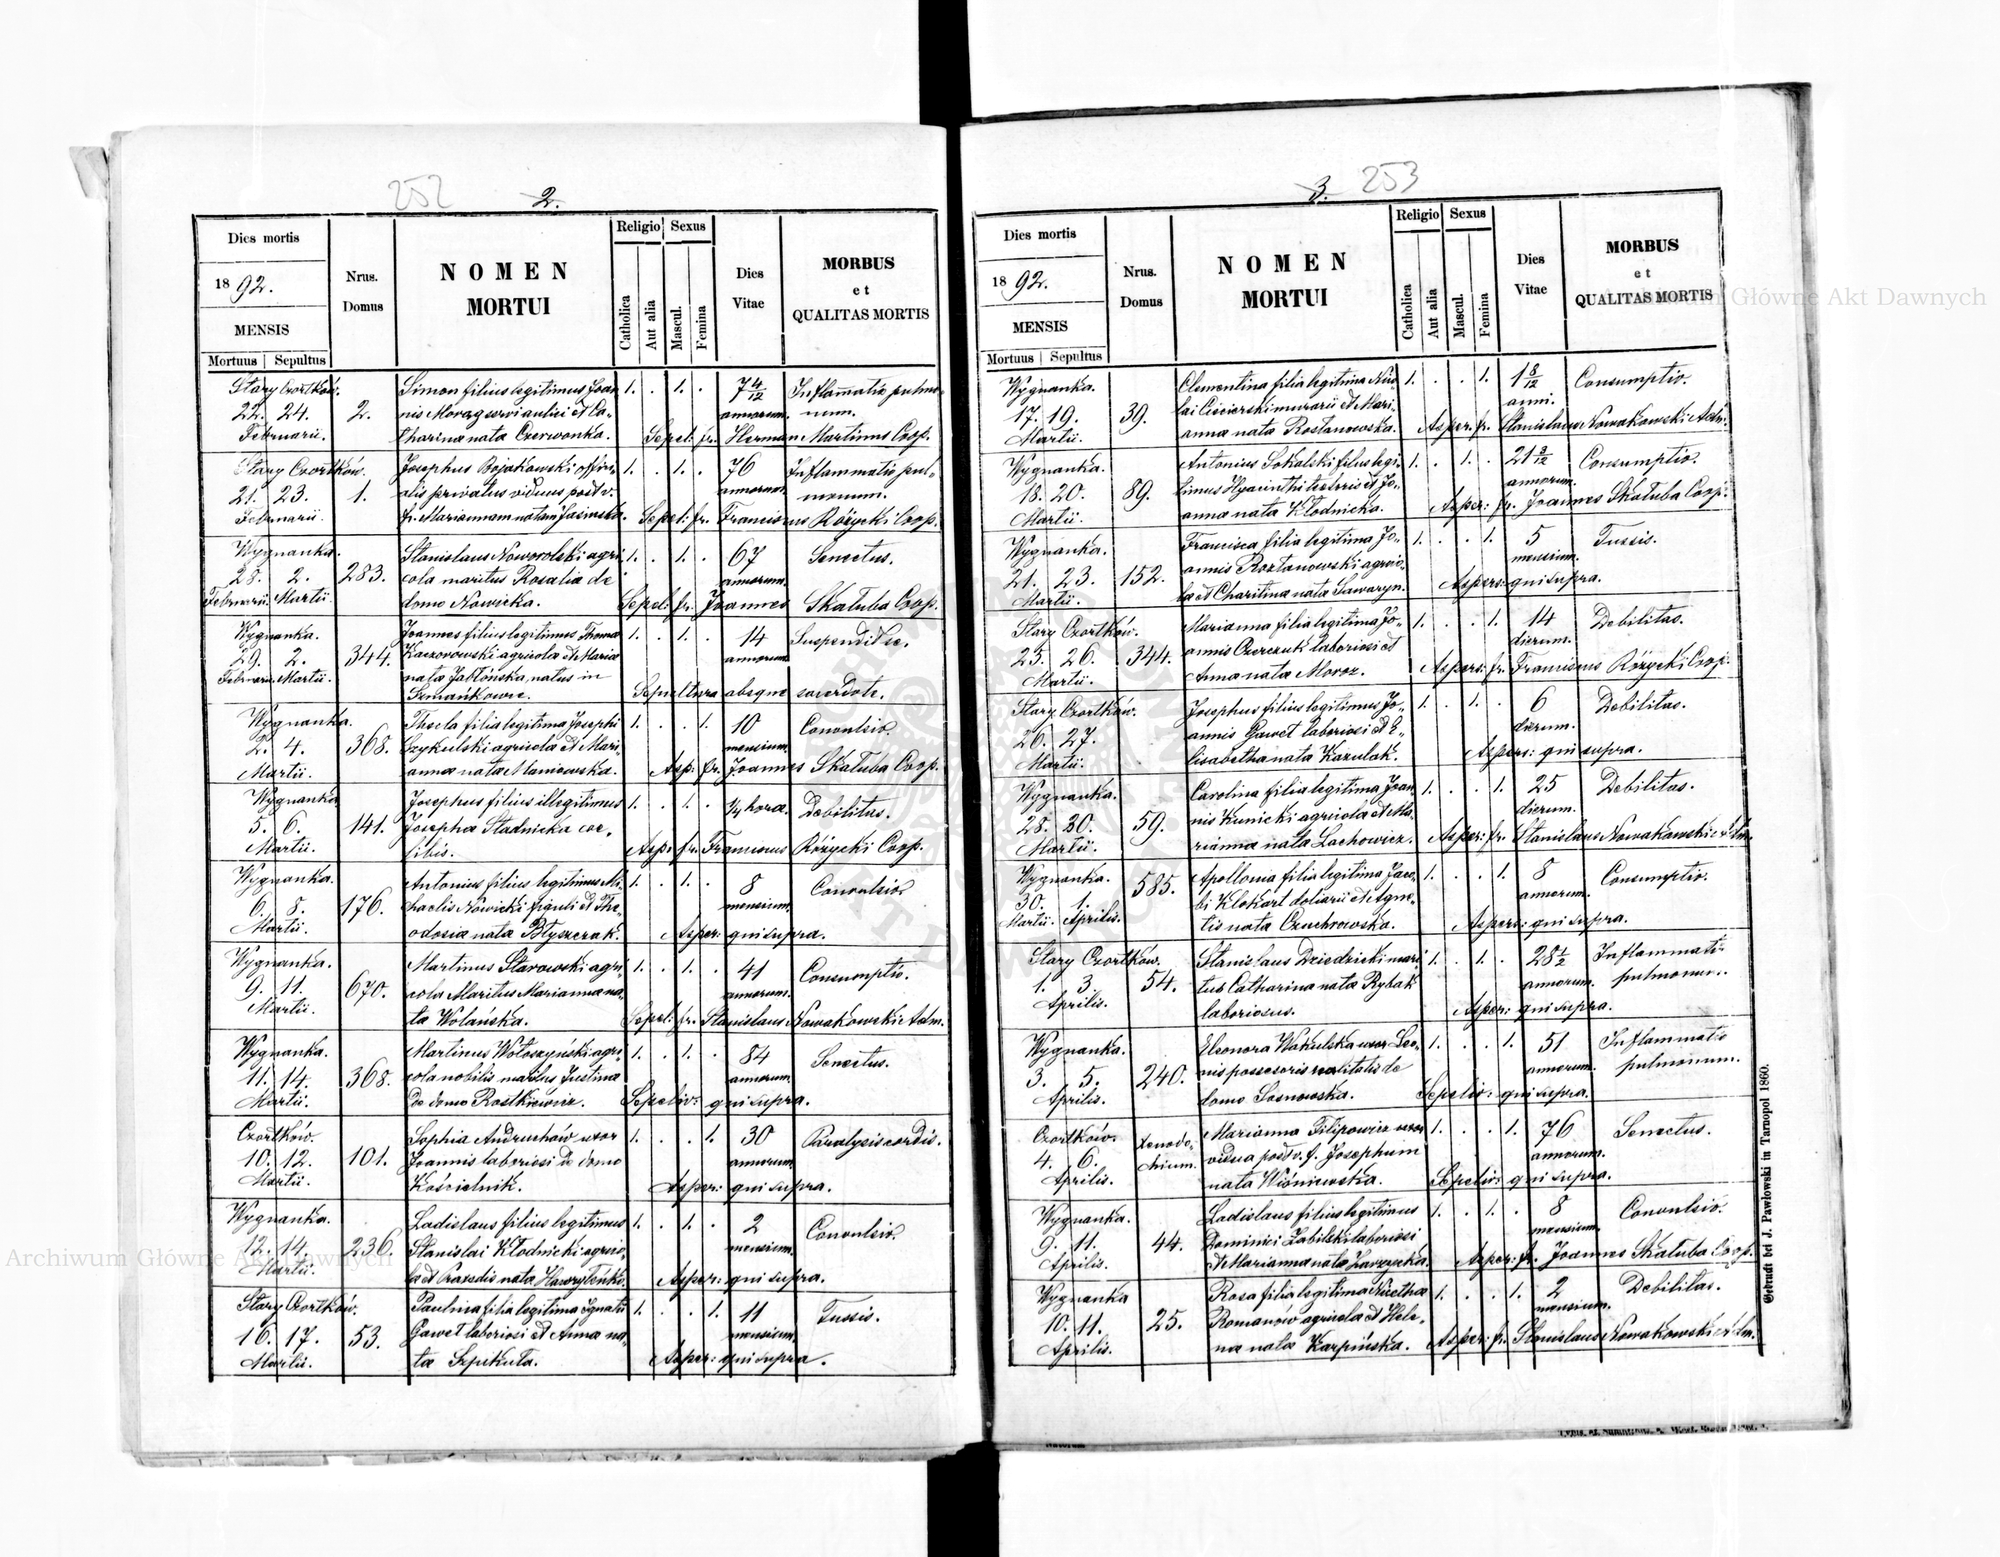 252
2.
Dies mortis
Nrus.
Domus
NOMEN
MORTUI
Religio
Sexus
Catholica
Aut alia
Mascul.
Femina
Dies
Vitae
MORBUS
et
QUALITAS MORTIS
1892.
MENSIS
Mortuus Sepultus
Stary Czortków. Simon filius legitimus Joan- 1. . 1. . 7 4/12 Inflammatio pulmo-
22. 24. 2. nis Moroz servi aulici et Ca- annorum. num.
Februarii. tharina nata Czerwonka. Sepel: fr. Herman Martinus Coop.
Stary Czortków. Josephus Bojakowski offici- 1. . 1. . 76 Inflammatio pul-
21. 23. 1. alis privatus viduus post v. annorum. monum.
Februarii. fr. Mariannam natam Jasinska. Sepel: fr. Franciscus Różycki Coop.
Wygnanka. Stanislaus Noworolski agri- 1. . 1. . 67 Senectus.
28. 2. 283. cola maritus Rosalia de annorum.
Februarii. Martii. domo Nowicka. Sepel: fr. Joannes Skałuba Coop.
Wygnanka. Joannes filius legitimus Thoma 1. . 1. . 14 Suspendit se.
29. 2. 344. Kaczorowski agricola et Maria annorum.
Februarii. Martii. nata Jabłońska, natus in
Szmańkowce. Sepultura absque sacerdote.
Wygnanka. Thecla filia legitima Josephi 1. . . 1. 10 Convulsio.
2. 4. 368. Czykulski agricola et Mari- mensium.
Martii. anna nata Maniowska. Asp: fr. Joannes Skałuba Coop.
Wygnanka Josephus filius illegitimus 1. . 1. . 1/4 hora. Debilitas.
5. 6. 141. Josepha Stadnicka coe-
Martii. libis. Asp: fr. Franciscus Różycki Coop.
Wygnanka. Antonius filius legitimus Mi- 1. . 1. . 8 Convulsio.
6. 8. 176. chaelis Nowicki figuli et The- mensium.
Martii. odosia nata Błyszczak. Asper: qui supra.
Wygnanka. Martinus Starowski agri- 1. . 1. . 41 Consumptio.
9. 11. 670. cola Maritus Marianna na- annorum.
Martii. ta Wolańska. Sepel: fr. Stanislaus Nowakowski Adm.
Wygnanka. Martinus Wołoszyński agri- 1. . 1. . 84 Senectus.
11. 14. 368. cola nobilis maritus Justina annorum.
Martii. de domo Rostkiewicz. Sepeliv: qui supra.
Czortków. Sophia Andruchów uxor 1. . . 1. 30 Paralysis cordis.
10. 12. 101. Joannis laboriosi de domo annorum.
Martii. Kościelnik. Asper: qui supra.
Wygnanka. Ladislaus filius legitimus 1. . 1. . 2 Convulsio.
12. 14. 236. Stanislai Kłodnicki agrico- mensium.
Martii. la et Praxedis nata Asper: qui supra.
Stary Czortków. Paulina filia legitima Ignatii 1. . . 1. 11 Tussis.
16. 17. 53. Gaweł laboriosi et Anna na- mensium.
Martii. ta Szpikuta. Asper: qui supra.
3. 253
Dies mortis
Nrus.
Domus
NOMEN
MORTUI
Religio
Sexus
Catholica
Aut alia
Mascul.
Femina
Dies
Vitae
MORBUS
et
QUALITAS MORTIS
1892.
MENSIS
Mortuus Sepultus
Wygnanka. Clementina filia legitima Nico- 1. . . 1. 1 8/12 Consumptio.
17. 19. 39. lai Ciścierski murarii et Mari- anni.
Martii. anna nata Rostanowska. Asper: fr. Stanislaus Nowakowski Adm.
Wygnanka. Antonius Sokalski filius legi- 1. . 1. . 21 3/12 Consumptio.
18. 20. 89. timus Hyacinthi et Jo- annorum.
Martii. anna nata Kłodnicka. Asper: fr. Joannes Skałuba Coop.
Wygnanka. Francisca filia legitima Jo- 1. . . 1. 5 Tussis.
21. 23. 152. annis Roztanowski agrico- mensium.
Martii. la et Charitina nata Sawaryn. Aspers: qui supra.
Stary Czortków. Marianna filia legitima Jo- 1. . . 1. 14 Debilitas.
25. 26. 344. annis Czerczuk laboriosi et dierum.
Martii. Anna nata Moroz. Aspers: fr. Franciscus Różycki Coop.
Stary Czortków. Josephus filius legitimus Jo- 1. . 1. . 6 Debilitas.
26. 27. annis Gaweł laboriosi et E- dierum.
Martii. lisabetha nata Kozulak. Aspers: qui supra.
Wygnanka. Carolina filia legitima Joan- 1. . . 1. 25 Debilitas.
28. 30. 59. nis Kunicki agricola et Ma- dierum.
Martii. rianna nata Lachowicz. Asper: fr. Stanislaus Nowakowski Adm.
Wygnanka. Apollonia filia legitima Jaco- 1. . . 1. 8 Consumptio.
30. 1. 585. bi Klokart doliarii et Agne- annorum.
Martii. Aprilis. tis nata Czuchrowska. Aspers: qui supra.
Stary Czortków. Stanislaus Dziedzicki mari- 1. . 1. . 28 1/2 Inflammati-
1. 3. 54. tus Catharina nata Rybak annorum. pulmonum.
Aprilis. laboriosus. Asper: qui supra.
Wygnanka. Eleonora Wakulska uxor Leo- 1. . . 1. 51 Inflammatio
3. 5. 240. nis possesoris realitatis de annorum. pulmonum.
Aprilis. domo Sosnowska. Sepeliv: qui supra.
Czortków. Xenodo- Marianna Filipowicz uxor 1. . . 1. 76 Senectus.
4. 6. chium. vidua post v. f. Josephum annorum.
Aprilis. nata Wiśniewska. Sepeliv: qui supra.
Wygnanka. Ladislaus filius legitimus 1. . 1. . 8 Convulsio.
9. 11. 44. Dominici Zabilski laboriosi mensium.
Aprilis. et Marianna nata Zarzycka. Asper: fr. Joannes Skałuba Coop.
Wygnanka Rosa filia legitima Nicetha 1. . . 1. 2 Debilitas.
10. 11. 25. Romanów agricola et Hele- mensium.
Aprilis. na nata Karpińska. Asper: fr. Stanislaus Nowakowski Adm.
Gedruckt bei J. Pawłowski in Tarnopol 1860.
Archiwum Główne Akt Dawnych
Archiwum Główne Akt Dawnych